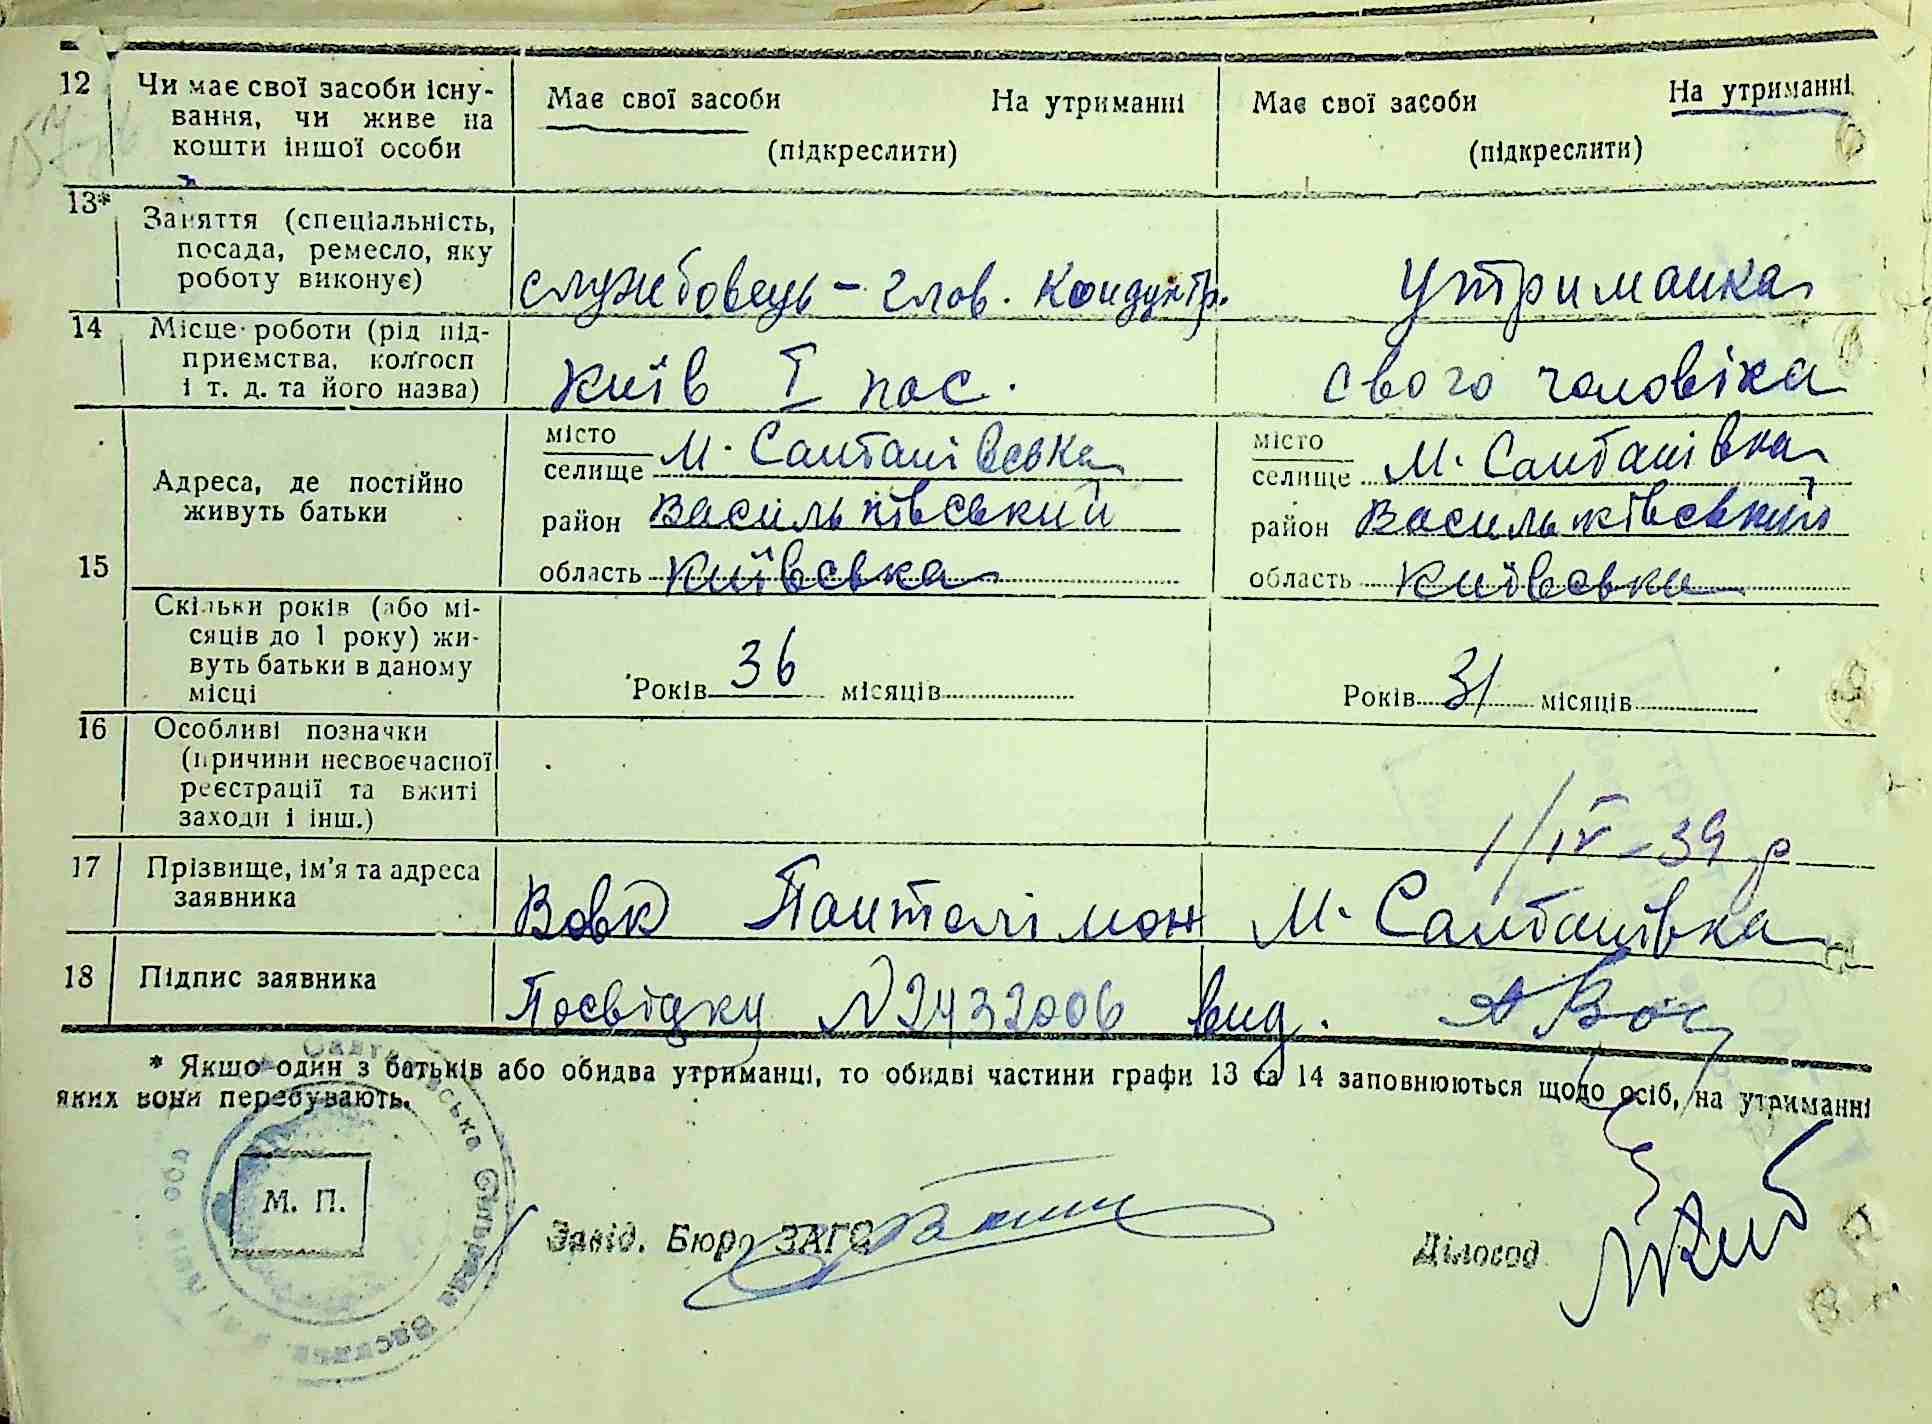 12 Чи має свої засоби існу- Має свої засоби На утриманні Має свої засоби На утриманні
вання, чи живе на
кошти іншої особи (підкреслити) (підкреслити)
13* Заняття (спеціальність,
посада, ремесло, яку
роботу виконує) службовець – глав. Кондуктр. Утриманка
14 Місце роботи (рід під-
приємства, колгосп
і т. д. та його назва) Київ I пас. свого чоловіка
місто місто
селище М. Салтанівська селище М. Салтанівка
Адреса, де постійно
живуть батьки район Васильківський район Васильківський
15 область Київська область Київська
Скільки років (або мі-
сяців до 1 року) жи-
вуть батьки в даному
місці Років 36 місяців Років 31 місяців
16 Особливі позначки
(причини несвоєчасної
реєстрації та вжиті
заходи і інш.) 1/IV – 39 р
17 Прізвище, ім'я та адреса
заявника Вовк Пантелімон М. Салтанівка
18 Підпис заявника Посвідку N2432006 вид.
* Якщо один з батьків або обидва утриманці, то обидві частини графи 13 та 14 заповнюються щодо осіб, на утриманні
яких вони перебувають.
М. П. Завід. Бюро ЗАГС Діловод